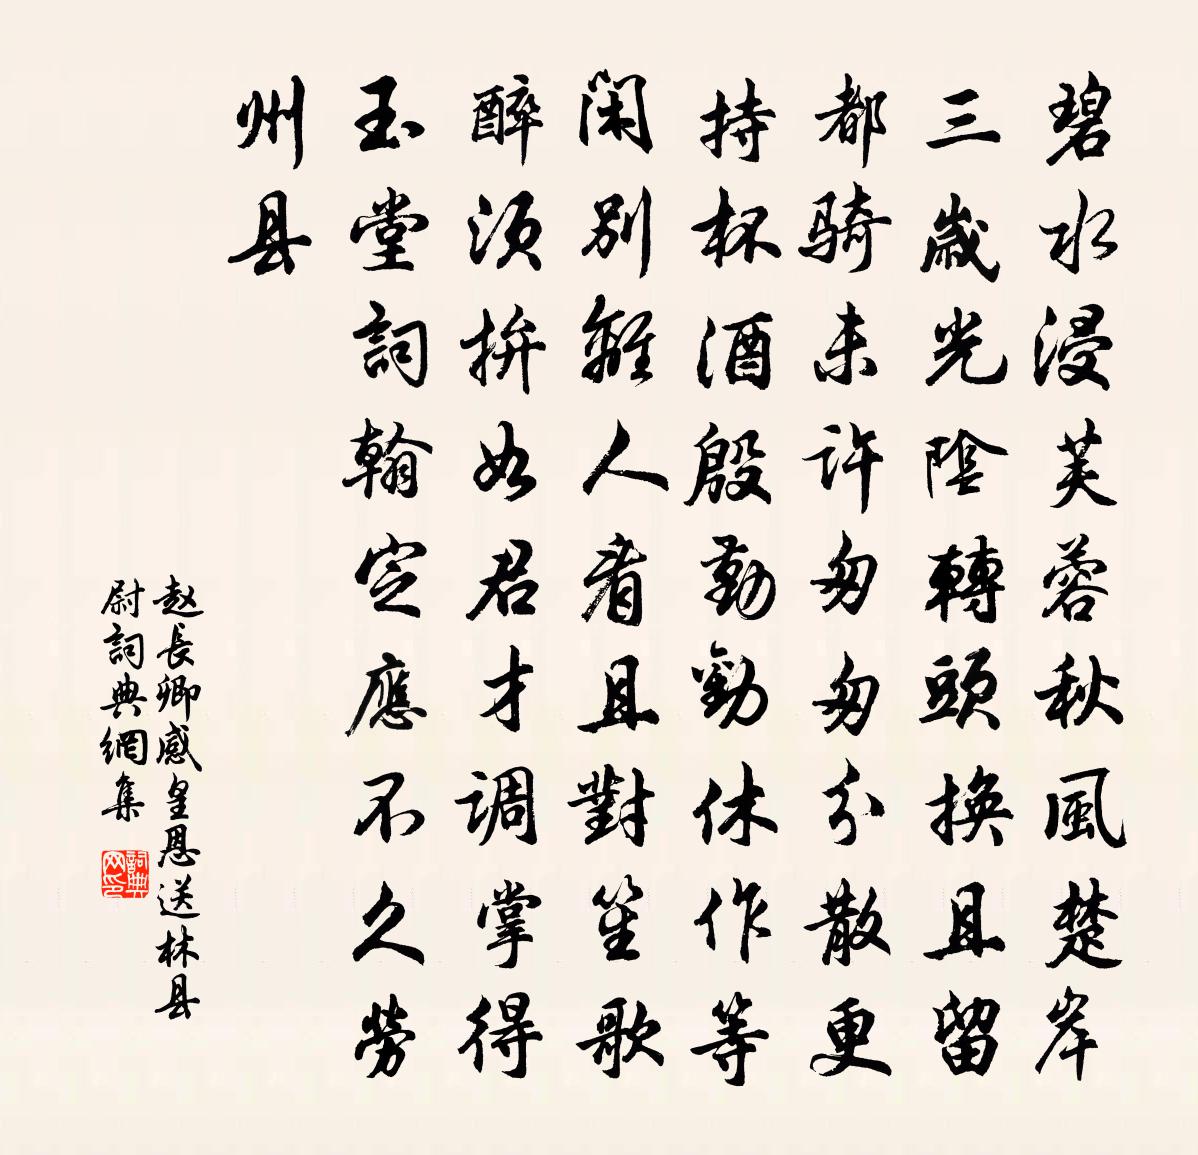 碧水浸芙蓉秋風楚岸
三歲光陰轉頭換且留
都騎未許匆匆分散更
持杯酒殷勤勸休作等
閑別離人看且對笙歌
醉须拚如君才调掌得
玉堂詞翰定應不久勞
州县
赵長卿感皇恩送林县
尉詞典網集
詞典
网印